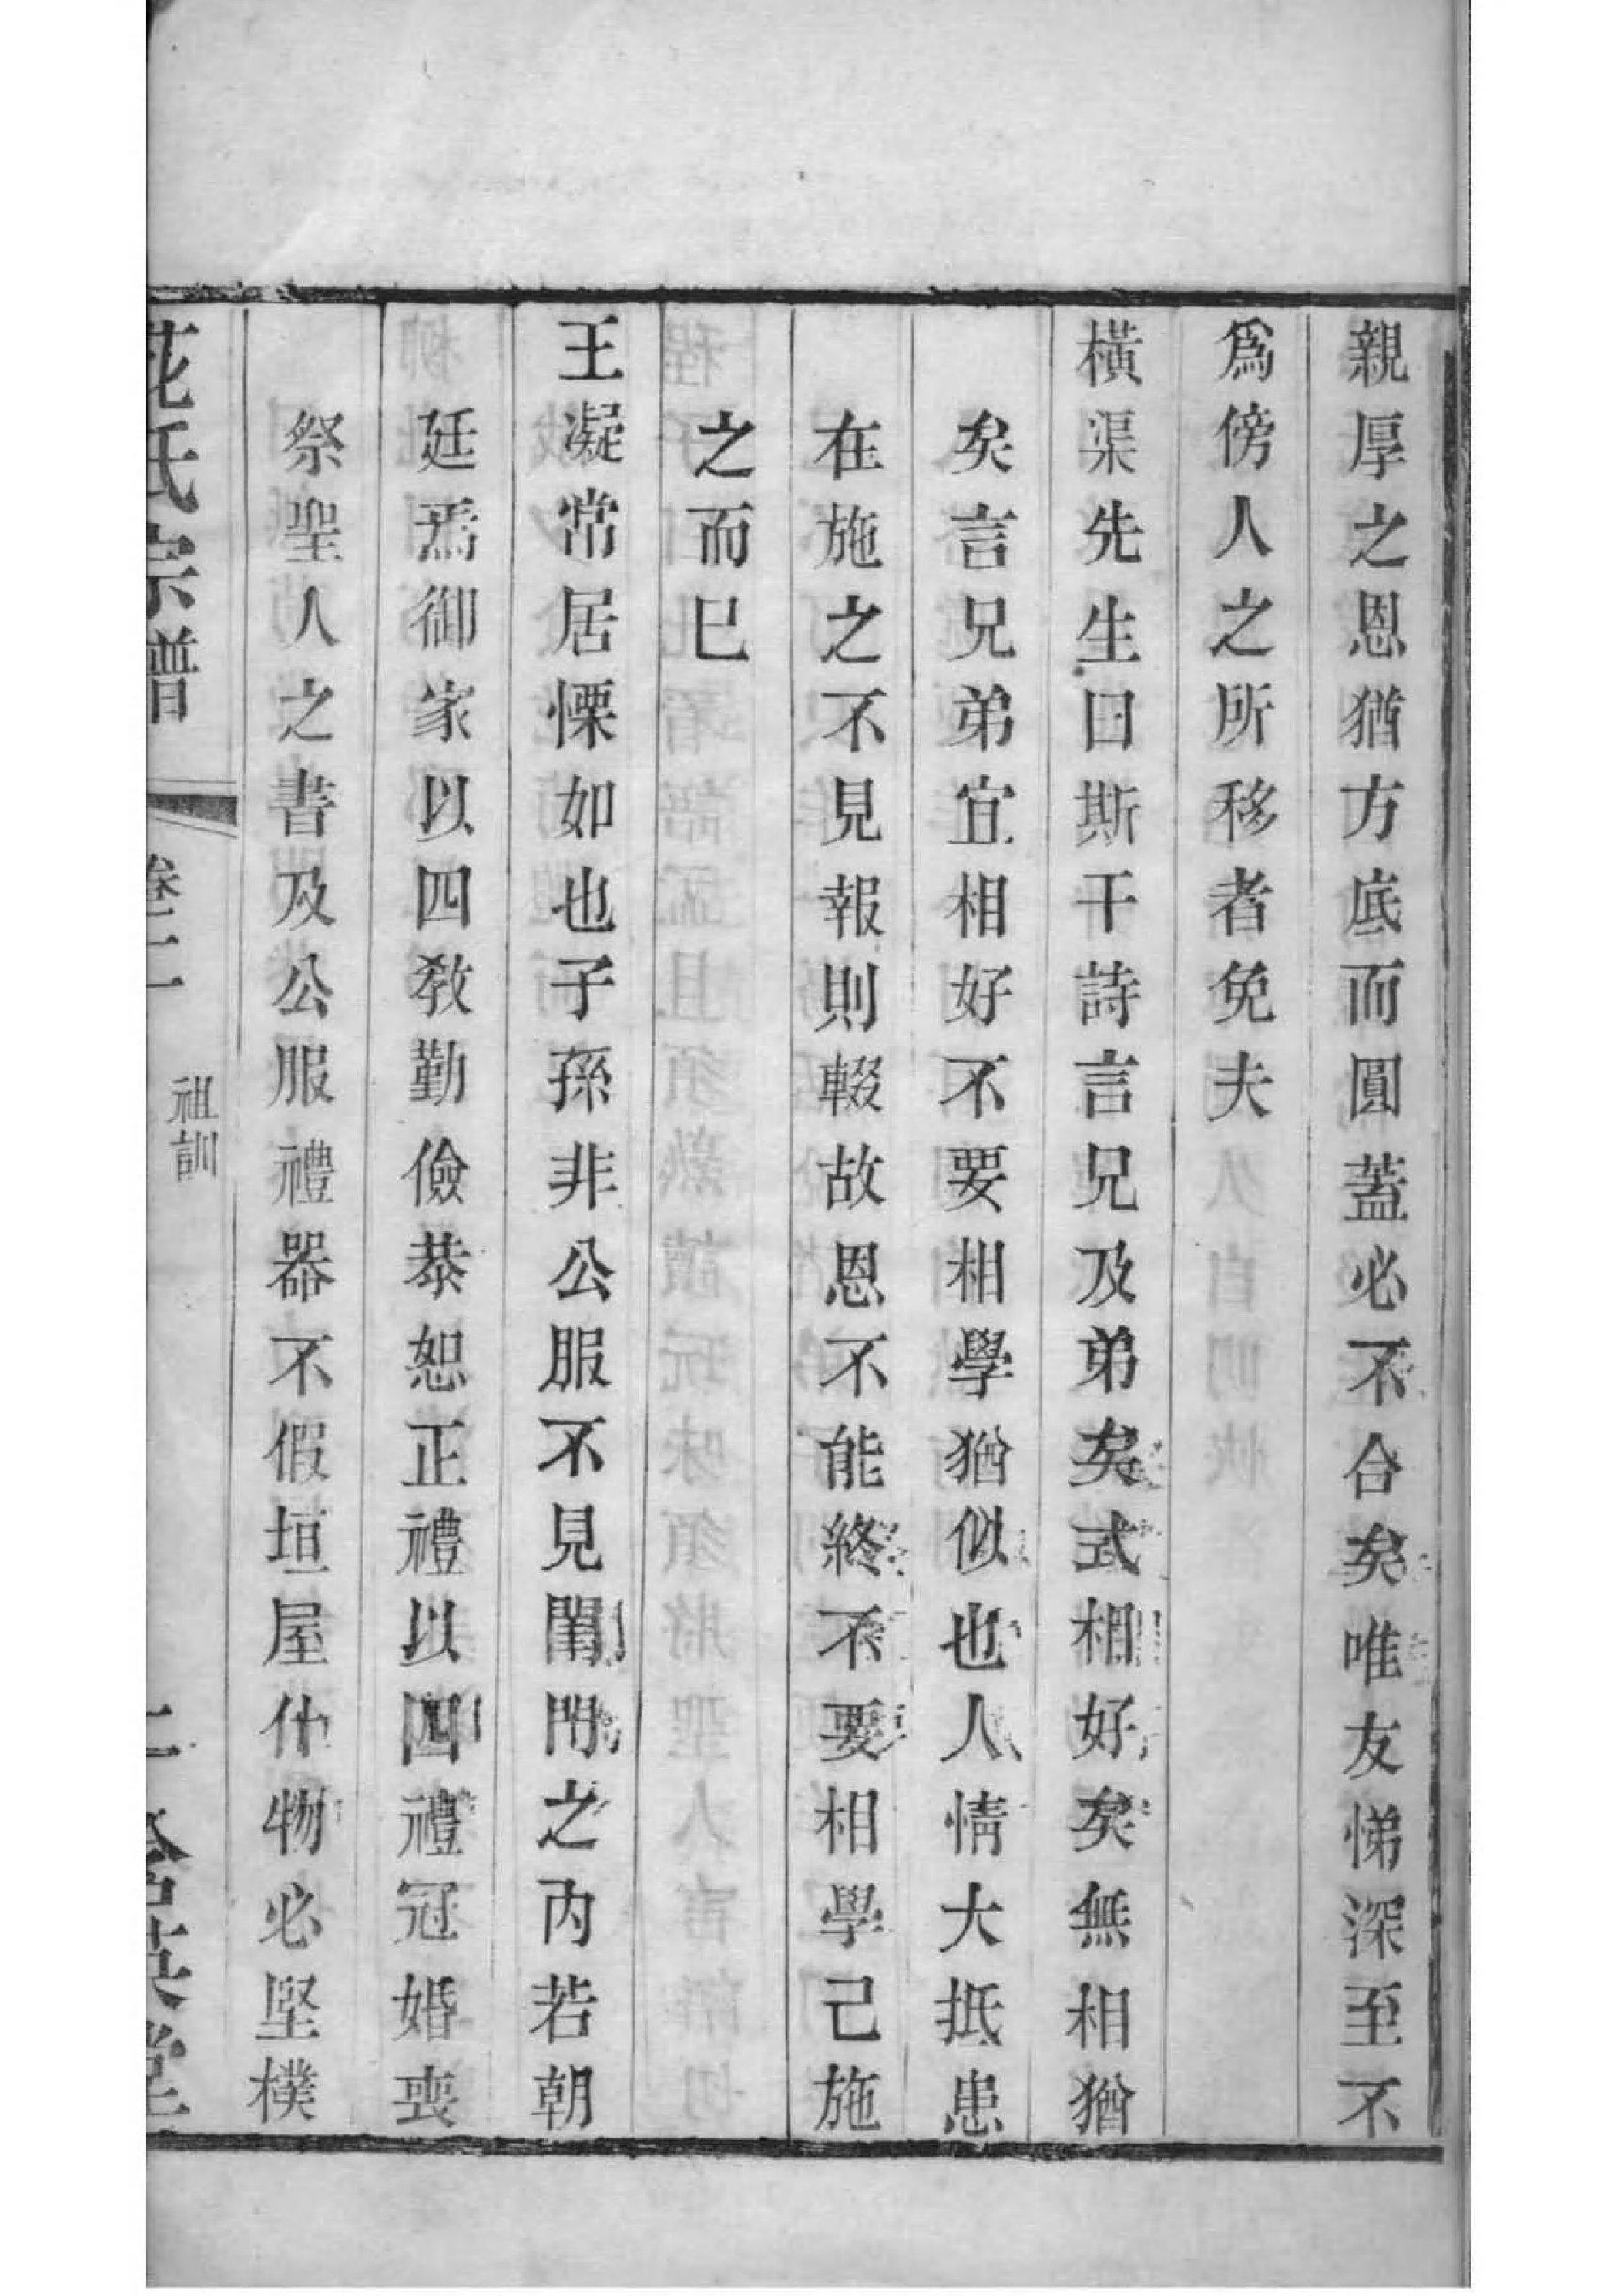 親厚之恩猶方底而圓蓋必不合矣唯友悌深至不
爲傍人之所移者免夫
橫渠先生曰斯干詩言兄及弟矣式相好矣無相猶
矣言兄弟宜相好不要相學猶似也人情大抵患
在施之不見報則輟故恩不能終不要相學己施
之而已
王凝常居慄如也子孫非公服不見閨門之內若朝
廷焉御家以四教勤儉恭恕正禮以四禮冠婚喪
祭聖人之書及公服禮器不假垣屋什物必堅樸
花氏宗譜
卷二
祖訓
二